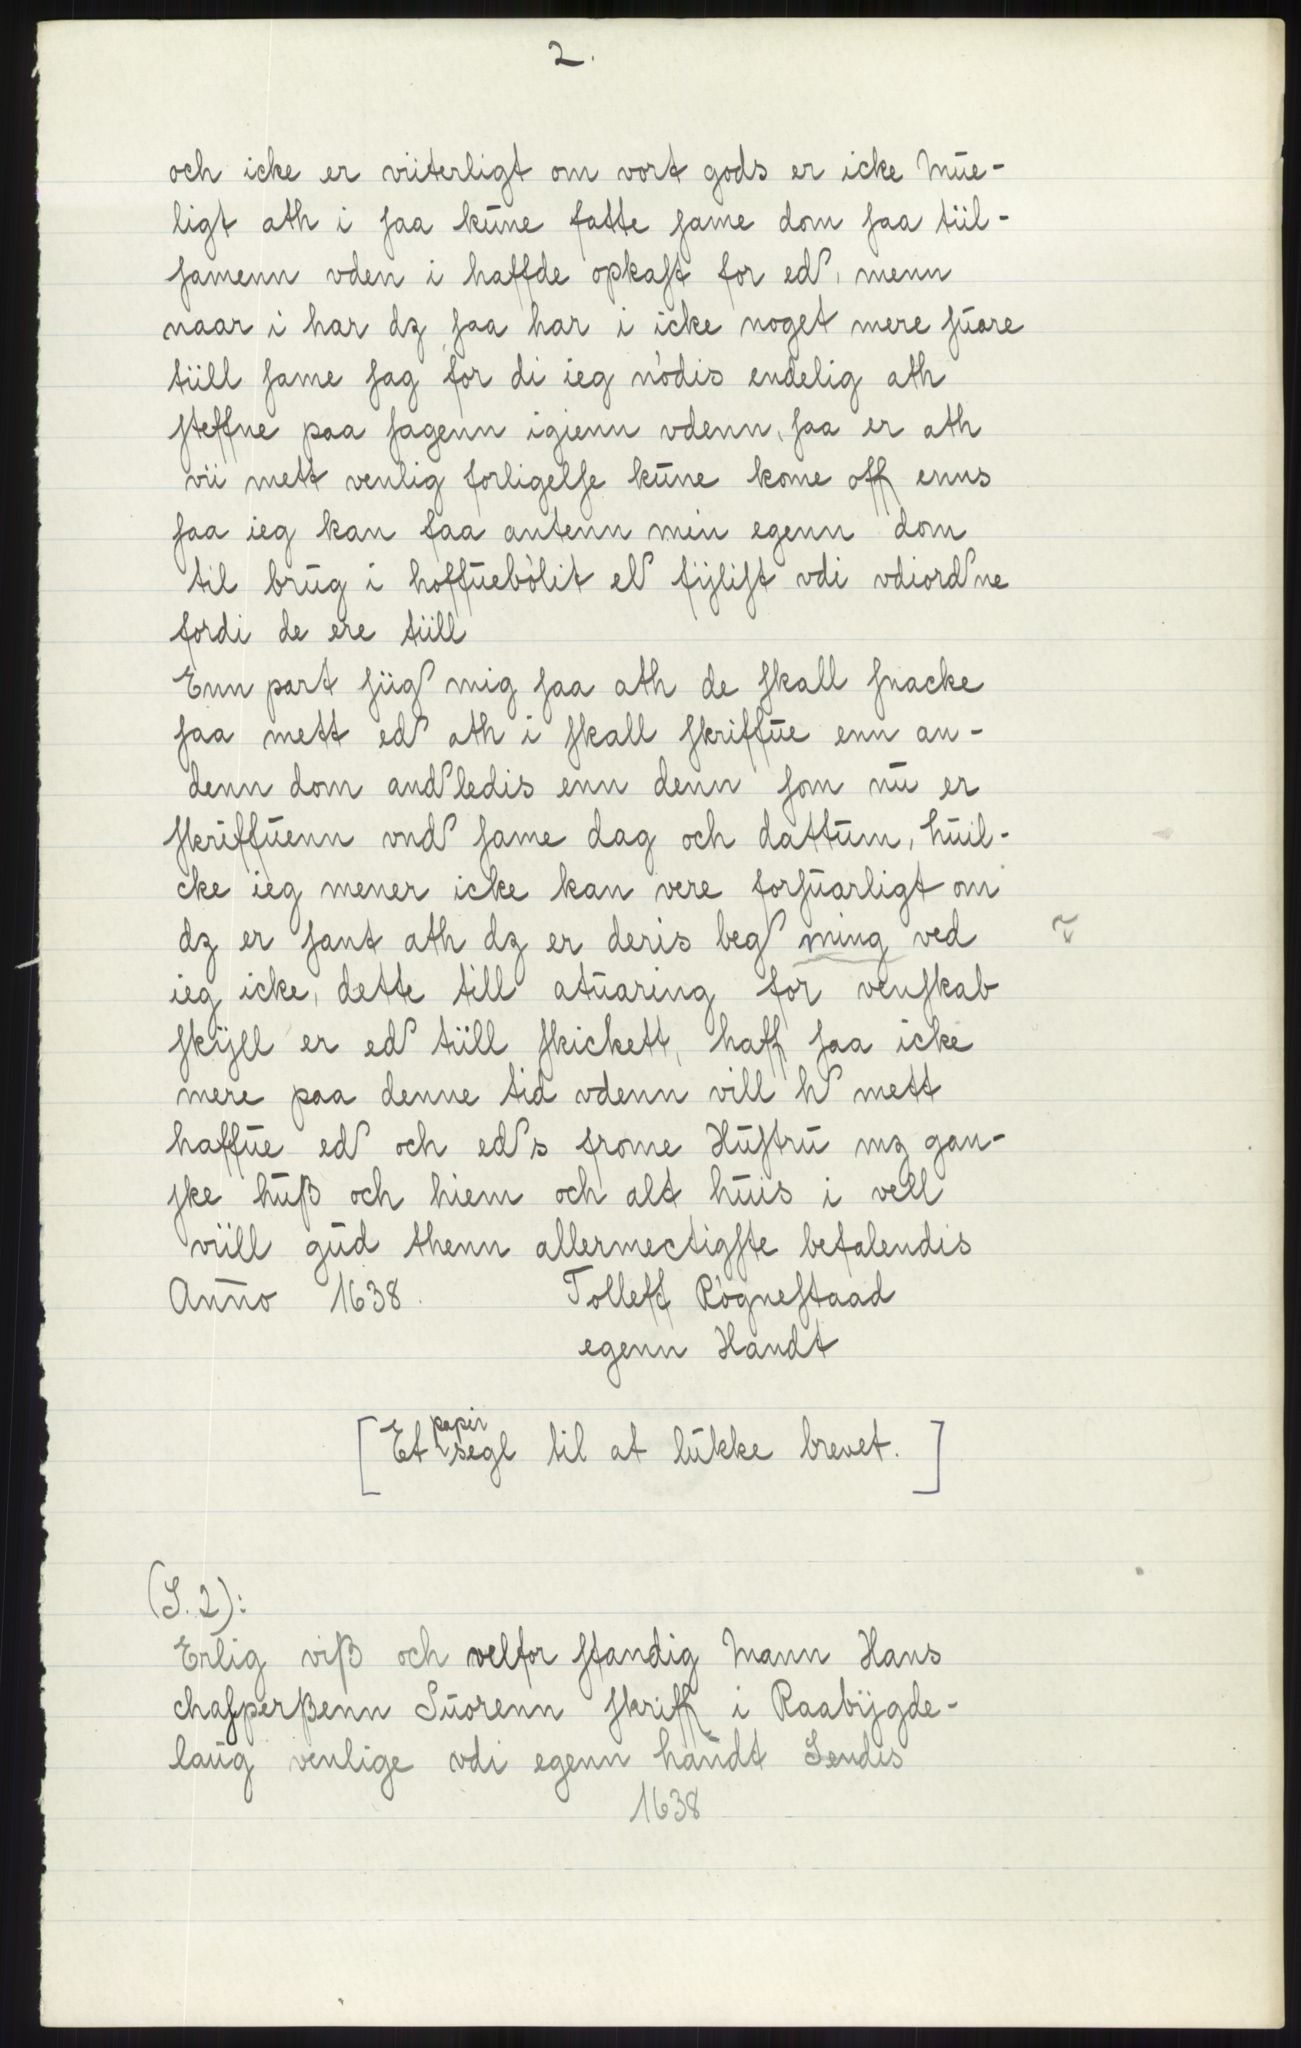 2.
och icke er viiterligt om vort gods er icke Mūe-
ligt ath i saa kūne fatte same dom saa tiil-
samenn vden i haffde opkast for ed, menn
naar i har dz saa har i icke noget mere suare
tiill same sag for di ieg nòdis endelig ath
steffne paa sagenn igienn vdenn, saa er ath
vii mett venlig forligelse kūne kome off enns
saa ieg kan faa antenn min egenn dom
til brūg i hoffūebòlit el fÿslist vdi vdiordne
fordi de ere tiill
Enn part siig mig saa ath de skall snacke
saa mett ed ath i skall skriffūe enn an-
denn dom andledis enn denn som nū er
skriffūenn vnd same dag och dattūm, hūil-
cke ieg mener icke kan vere forsūarligt om
dz er sant ath dz er deris beg ming ved
ieg icke, dette till atūaring for venskab
skÿll er ed tiill skickett, haff saa icke
mere paa denne tid vdenn vill h mett
haffūe ed och eds frome Hūstrū mz gan-
ske hūß och hiem och alt hūis i vell
viill gūd thenn allermectigste befalendis
Anno 1638. Tolleff Rògnestaad
egenn Handt
[Et papir segl til at lūkke brevet.]
(S. 2):
Erlig viß och velfor standig Mann Hans
chasperßenn Sūorenn skriff i Raabÿgde-
laūg venlige vdi egenn hāndt Sendis
1638